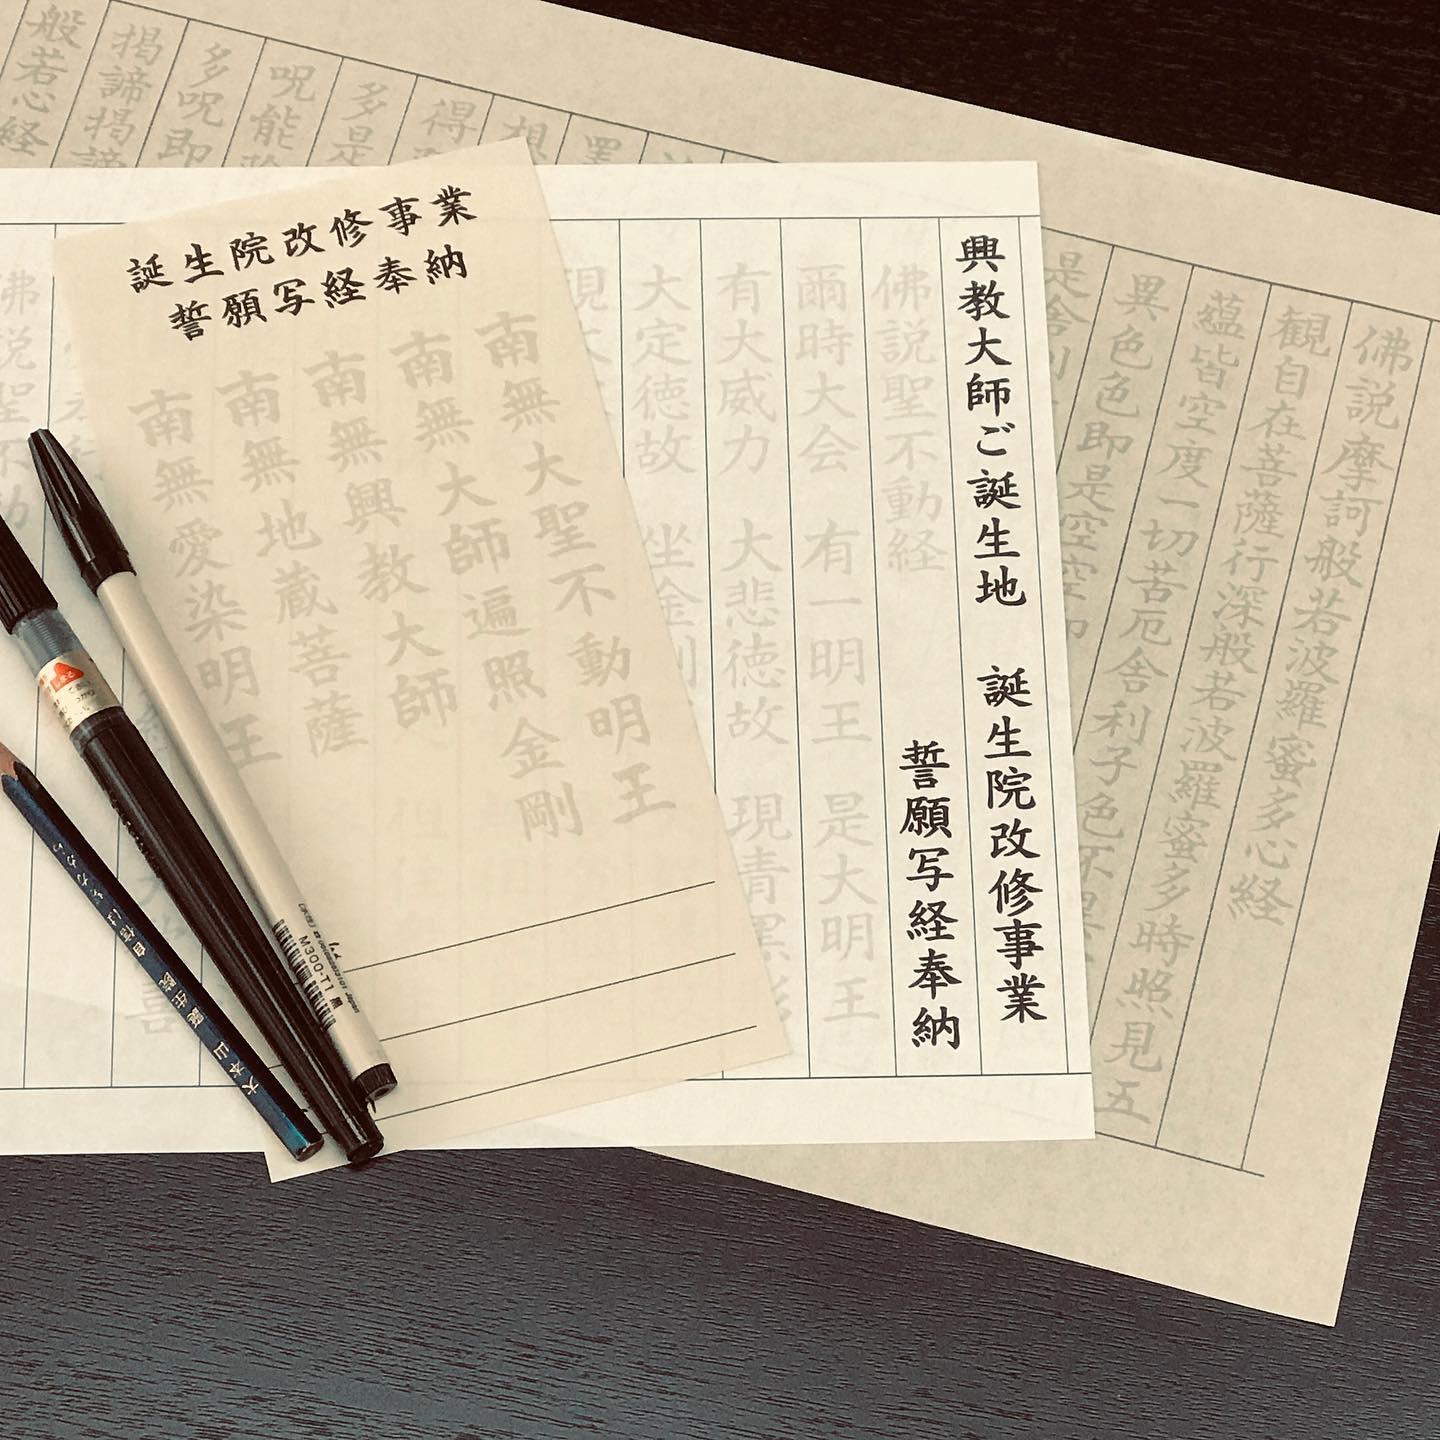 誕生院改修事業
誓願写経奉納
南無大聖不動明王
南無大師遍照金剛
南無興教大師
南無地蔵菩薩
南無愛染明王
興教大師ご誕生地 誕生院改修事業
誓願写経奉納
佛説聖不動経
爾時大会 有一明王 是大明王
有大威力 大悲徳故 現青黒形
大定徳故 坐金剛
佛説摩訶般若波羅蜜多心経
観自在菩薩行深般若波羅蜜多時照見五
蘊皆空度一切苦厄舎利子色不異
異色色即是空空即
是舎利
得
多是
呪能除
多呪即
掲諦掲諦
般若心経
M300-T1 黒